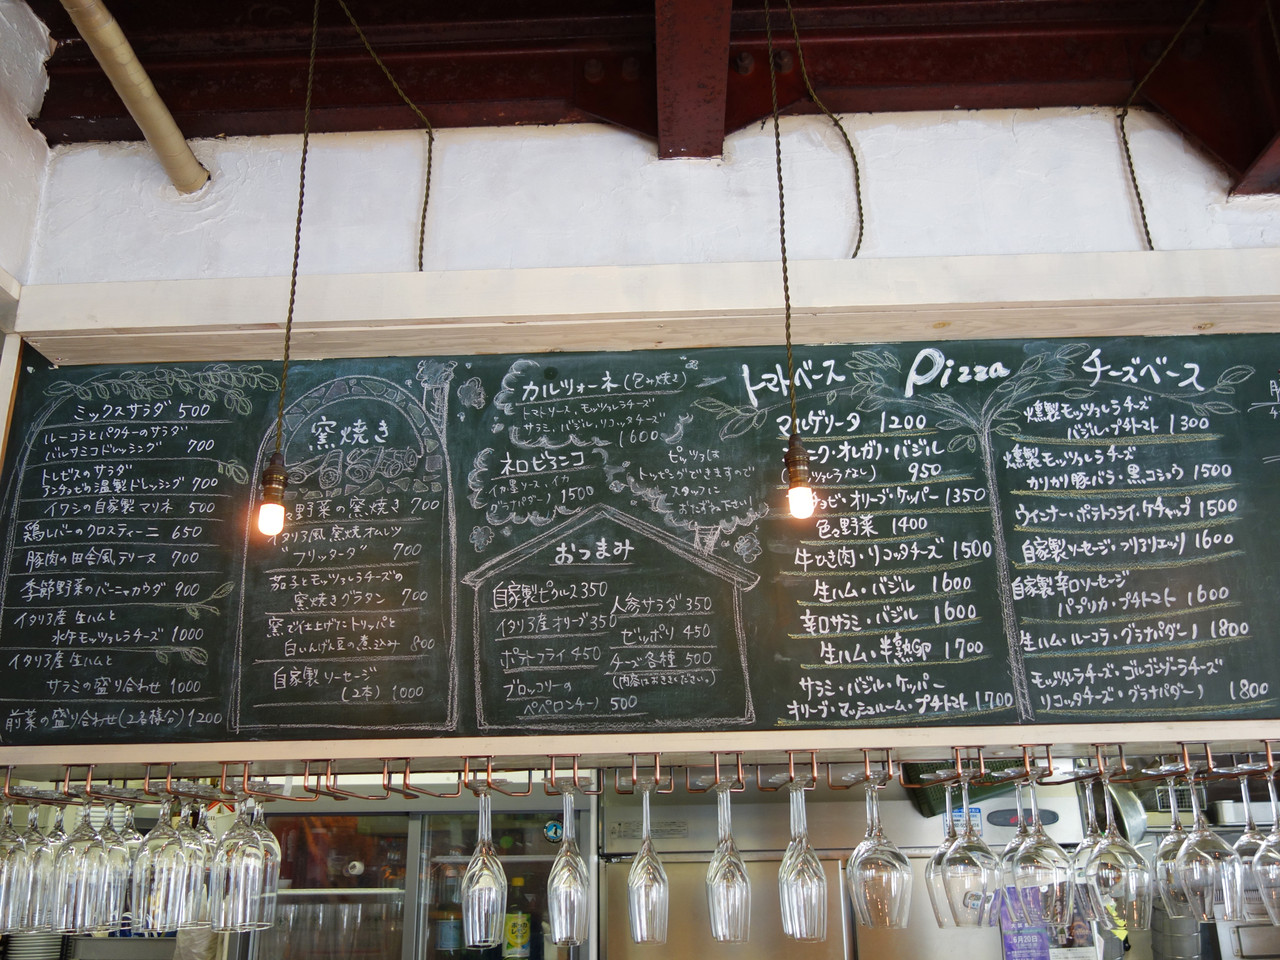 ミックスサラダ 500
ルーコラとパクチーのサラダ
バルサミコドレッシング 700
トレビスのサラダ
アンチョビの温製ドレッシング 700
イワシの自家製マリネ 500
鶏レバーのクロスティーニ 650
豚肉の田舎風テリーヌ 700
季節野菜のバーニャカウダ 900
イタリア産 生ハムと
水牛モッツァレラチーズ 1000
イタリア産生ハムと
サラミの盛り合わせ 1000
前菜の盛り合わせ(2名様分)1200
窯焼き
々野菜の窯焼き 700
イタリア風 窯焼オムレツ
"フリッタータ" 700
茄子とモッツァレラチーズの
窯焼きグラタン 700
窯で仕上げたトリッパと
白いんげん豆の煮込み 800
自家製ソーセージ
(2本) 1000
カルツォーネ(包み焼き)
トマトソース、モッツァレラチーズ
サラミ、バジル、リコッタチーズ
1600
ネロビアンコ
イカ墨ソース・イカ
グラナパダーノ 1500
ピッツァは
トッピングできますので
スタッフに
おたずね下さい!
おつまみ
自家製ピクルス 350
イタリア産オリーブ 350
ポテトフライ 450
ブロッコリーの
ペペロンチーノ 500
人参サラダ 350
ゼッポリ 450
チーズ各種 500
(内容はおききください。)
トマトベース
Pizza
チーズベース
マルゲリータ 1200
ニク・オレガノ・バジル
950
チョビ・オリーブ・ケッパー 1350
色々野菜 1400
牛ひき肉・リコッタチーズ 1500
生ハム・バジル 1600
辛口サラミ・バジル 1600
生ハム・半熟卵 1700
サラミ・バジル・ケッパー
オリーブ・マッシュルーム・プチトマト 1700
燻製モッツァレラチーズ
バジル・プチトマト 1300
燻製モッツァレラチーズ
カリカリ豚バラ・黒コショウ 1500
ウィンナー・ポテトフライ・ケチャップ 1500
自家製ソーセージ・フリアリエッリ 1600
自家製辛口ソーセージ
パプリカ・プチトマト 1600
生ハム・ルーコラ・グラナパダーノ 1800
モッツァレラチーズ・ゴルゴンゾーラチーズ
リコッタチーズ・グラナパダーノ 1800
6月20日